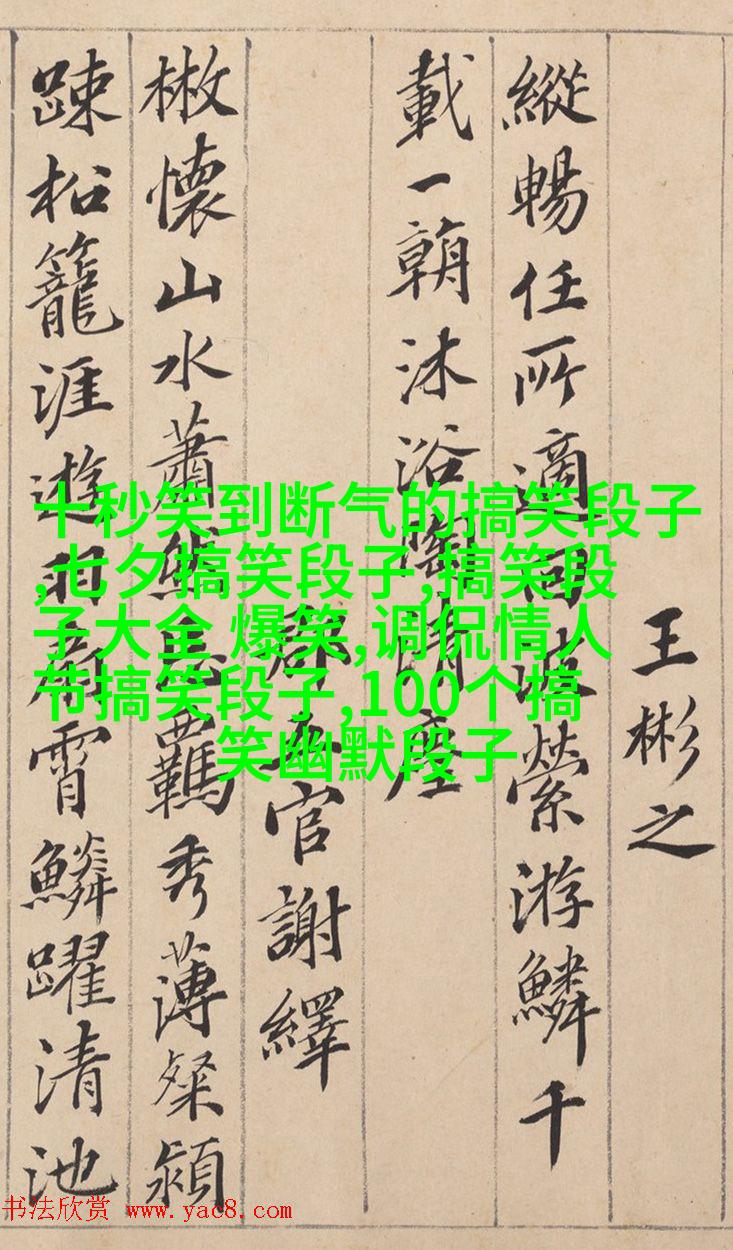 王彬之
縱暢任所適回波縈游鱗千
載一朝沐浴陶清塵
郡五官謝繹
散懷山水蕭然忘羈秀薄粲穎
踈松籠涯遊羽扇霄鱗躍清池
十秒笑到断气的搞笑段子
,七夕搞笑段子,搞笑段
子大全 爆笑,调侃情人
节搞笑段子,100个搞
笑幽默段子
书法欣赏 www.yac8.com